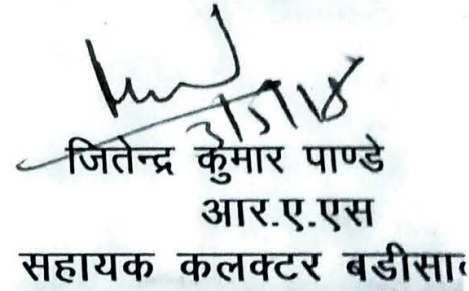 3/5/18
जितेन्द्र कुमार पाण्डे
आर.ए.एस
सहायक कलक्टर